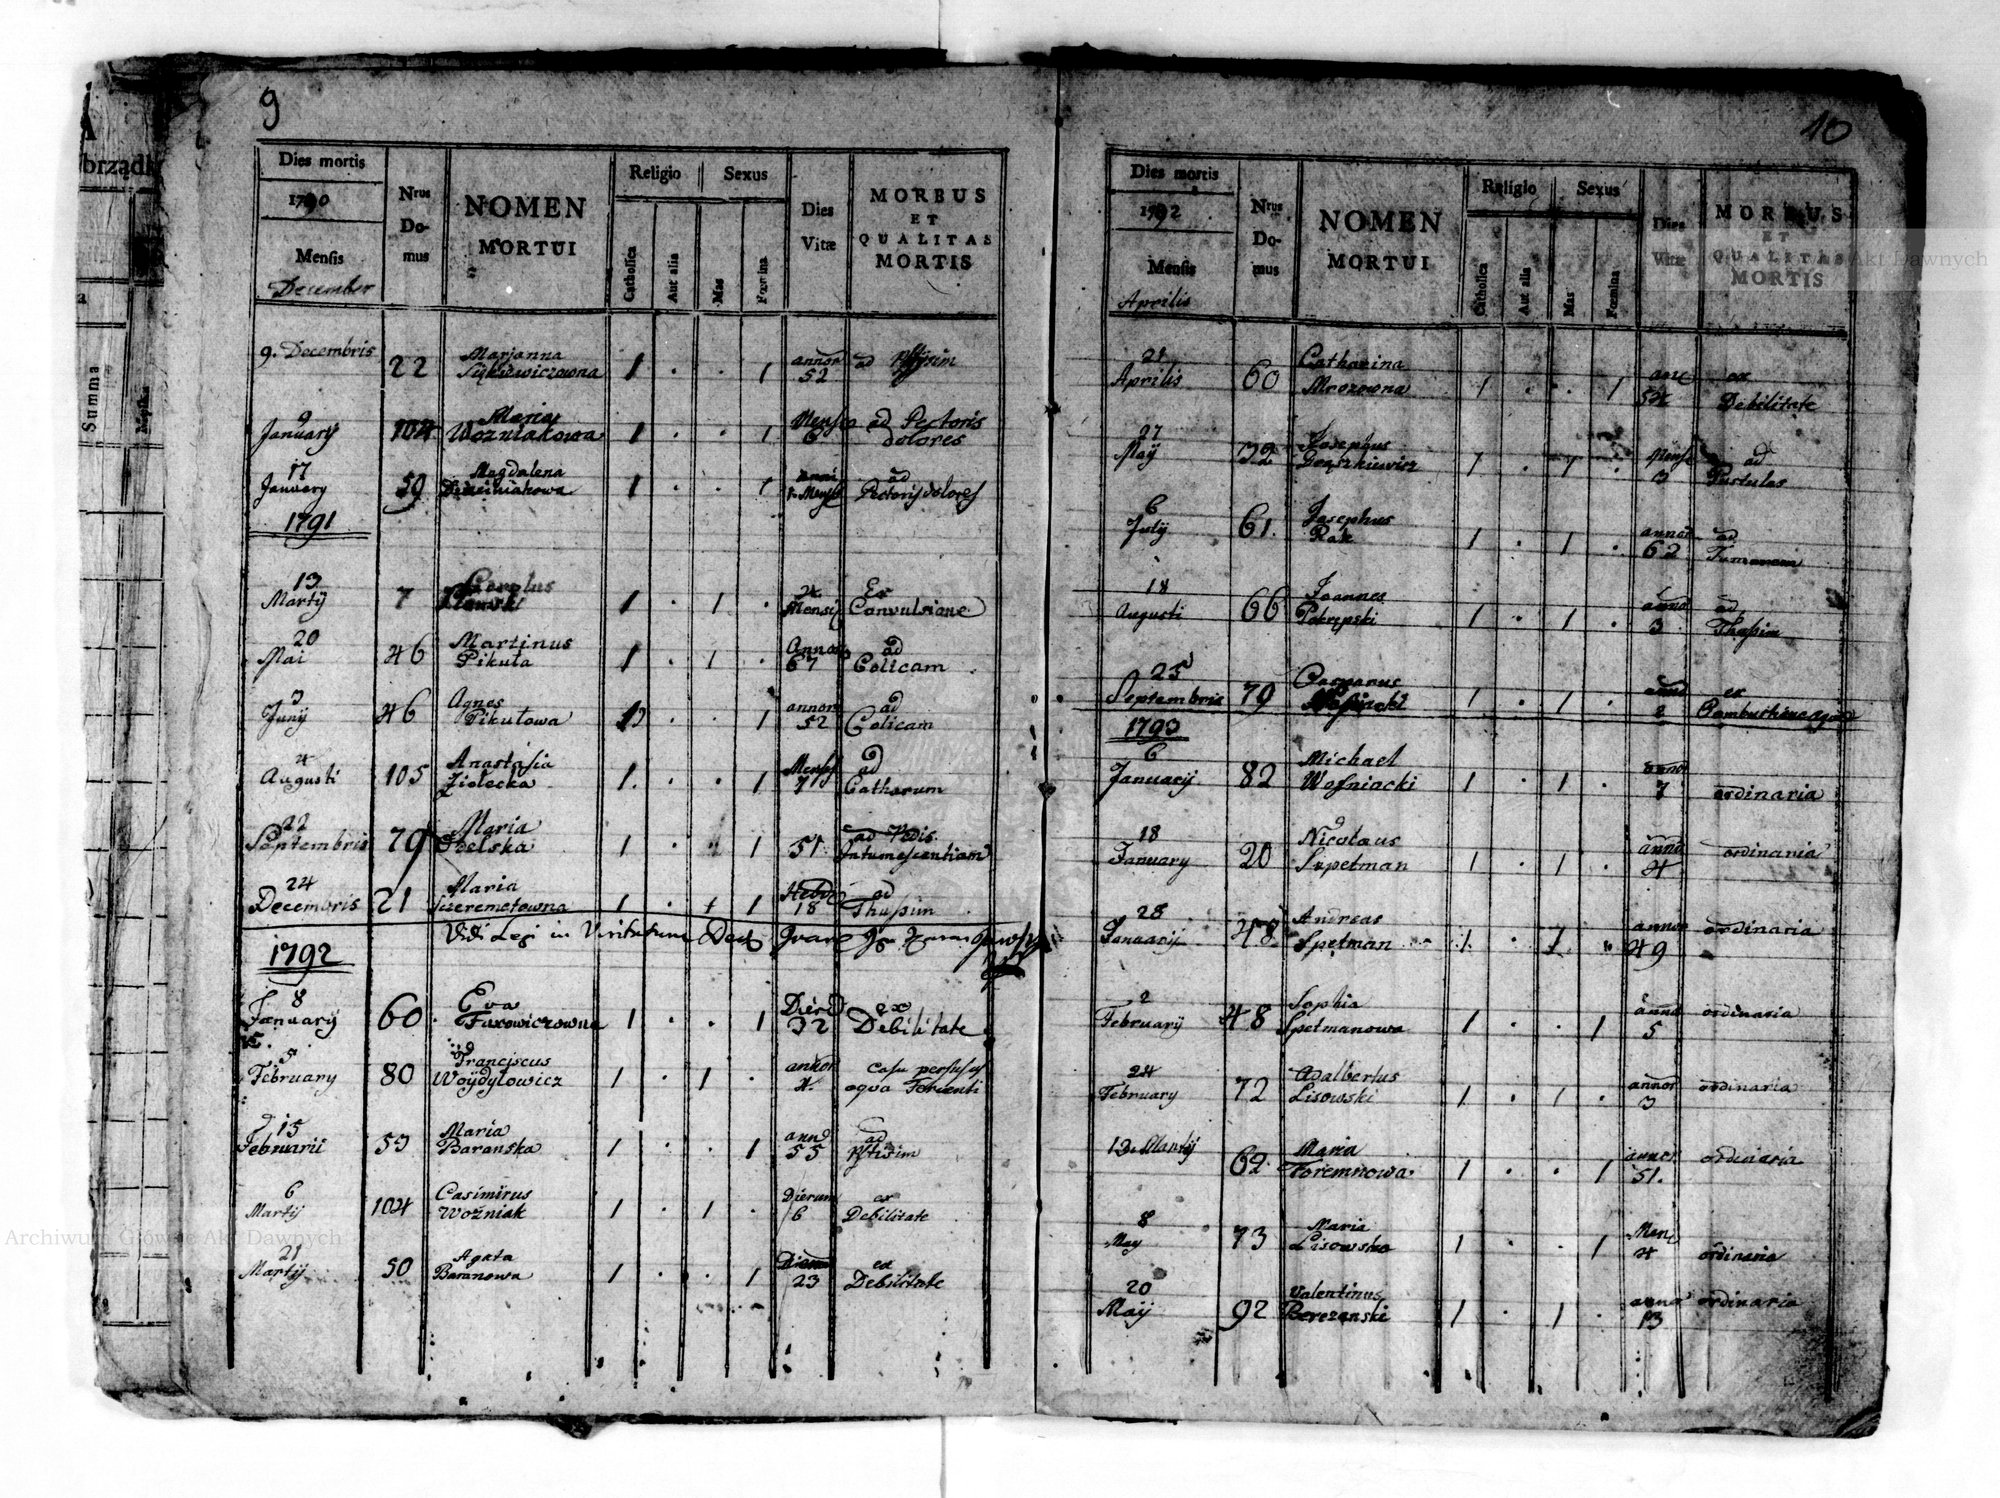 9
Dies mortis
1790
Mensis
December
Nrus Domus
NOMEN
MORTUI
Religio
Catholica
Aut alia
Sexus
Mas
Fœmina
Dies
Vitæ
MORBUS
ET
QUALITAS
MORTIS
9. Decembris 22 Marjanna 1 . . 1 annor 52 ad
9 January 104 Maria Wozniakowa 1 . . 1 Mens 6 ad Pectoris dolores
17 January 59 Magdalena 1 . . 1 ad Pectoris dolores
1791
13 Martij 7 Carolus 1 . 1 . Mensi Ex Convulsione
20 Mai 46 Martinus Pikuła 1 . 1 . Annor 67 ad Colicam
3 Junij 46 Agnes Pikułowa . . 1 annor 52 ad Colicam
4 Augusti 105 Anastasia Ziołecka 1 . . 1 Mens 7 ad Catharum
22 Septembris 79 Maria 1 . 1 51 ad Pedis Intumescentiam
24 Decembris 21 Maria Szeremetowna 1 . 1 Hebd 18 ad Thussim
Vidi Legi in
1792
8 January 60 Eva 1 . . 1 Dier 32 ex Debilitate
5 February 80 Franciscus Woÿdyłowicz 1 . 1 . annor 4. casu perfusus aqua
15 Februarii 53 Maria Baranska 1 . . 1 ann 55 ad
6 Martij 104 Casimirus Wozniak 1 . 1 . Dierum 6 ex Debilitate
21 Martij 50 Agata Baranowa 1 . . 1 Dierum 23 ex Debilitate
10
Dies mortis
1792
Mensis
Aprilis
Nrus Domus
NOMEN
MORTUI
Religio
Catholica
Aut alia
Sexus
Mas
Fœmina
Dies
Vitæ
MORBUS
ET
QUALITAS
MORTIS
21 Aprilis 60 Catharina Mrozowna 1 . . 1 ex Debilitate
27 Maij 32 Josephus 1 . 1 . Mens 3 ad Pustulas
6 Julij 61. Josephus Rak 1 . 1 . annor 62 ad
18 Augusti 66 Joannes 1 . 1 . anno 3 ad Thussim
25 Septembris 79 1 . 1 . 2 ex
1793
6 Januarij 82 Michael Wosniacki 1 . 1 . annor 7 ordinaria
18 January 20 Nicolaus 1 . 1 . anno 4 ordinaria
28 Januarij 48 Andreas Spetman 1 . 1 annor 49 ordinaria
2 Februarij 48 Sophia Spetmanowa 1 . . 1 anno 5 ordinaria
24 February 72 Adalbertus Lisowski 1 . 1 . annor 3 ordinaria
13 Martij 62 Maria Foremnowa 1 . . 1 annor 51. ordinaria
8 May 73 Maria Lisowska 1 . . 1 Mens 4 ordinaria
20 Maij 92 Valentinus Berezanski 1 . 1 . anno 13 ordinaria
brządk
Summa
Archiwum Główne Akt Dawnych
Akt Dawnych